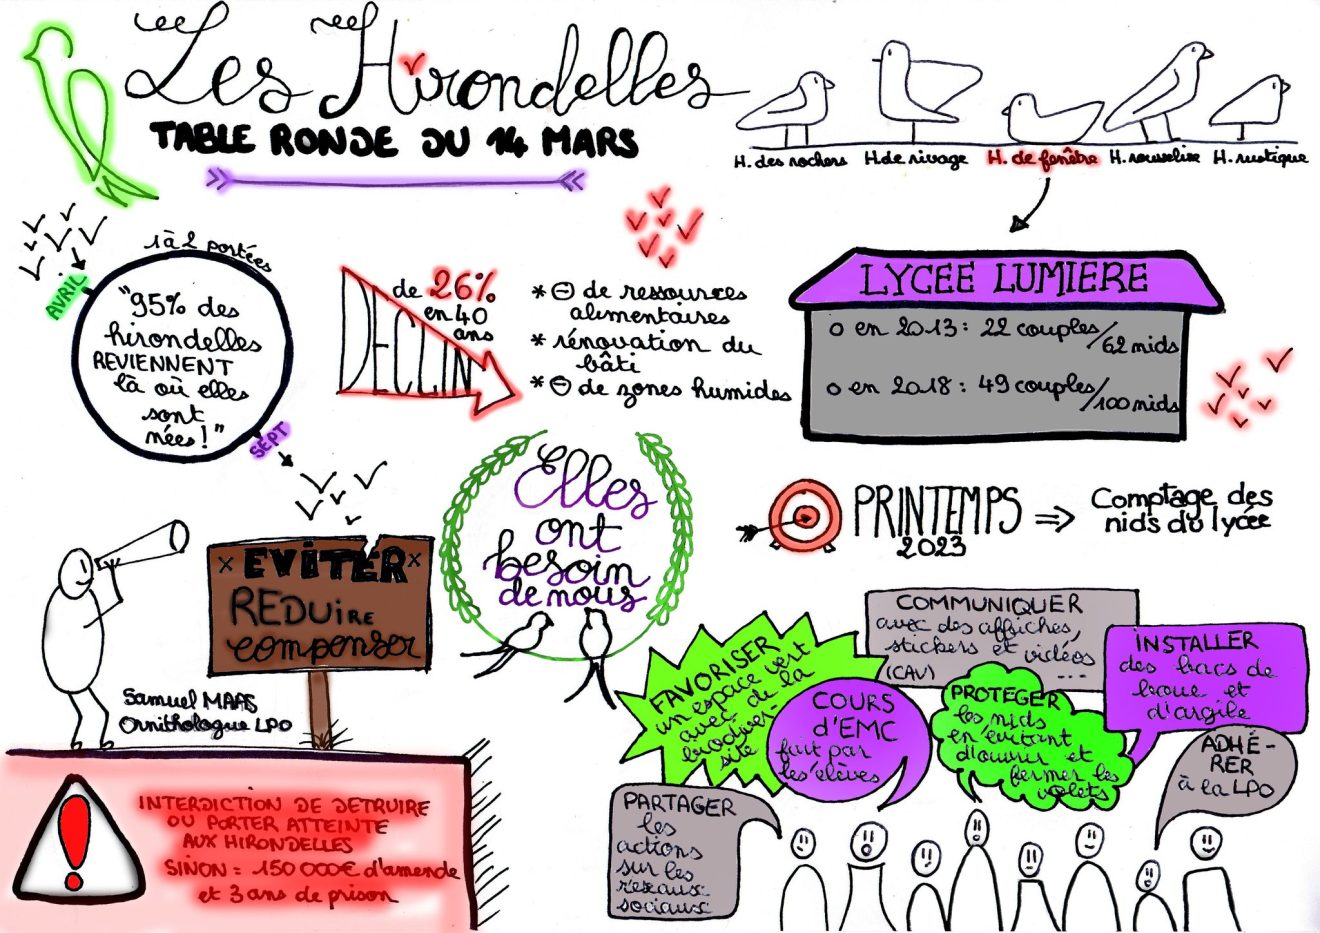 Les Hirondelles
TABLE RONDE DU 14 MARS
H. des rochers
H. de rivage
H. de fenêtre
H. rousseline
H. rustique
AVRIL
1 à 2 portées
"95% des
hirondelles
REVIENNENT
là où elles
sont
nées!"
SEPT
DECLIN
de 26%
en 40
ans
* ⊖ de ressources
alimentaires
* rénovation du
bâti
* ⊖ de zones humides
LYCEE LUMIERE
o en 2013: 22 couples/62 nids
o en 2018: 49 couples/100 nids
Elles
ont
besoin
de nous
PRINTEMPS
2023
=> Comptage des
nids du lycée
x EVITER x
REDUiRE
compenser
Samuel MAAS
Ornithologue LPO
INTERDICTION DE DETRUIRE
OU PORTER ATTEINTE
AUX HIRONDELLES
SiNON = 150 000€ d'amende
et 3 ans de prison
FAVORISER
un espace vert
avec de la
biodiver-
sité
COMMUNIQUER
avec des affiches,
stickers et vidéos
(CAV) ...
INSTALLER
des bacs de
boue et
d'argile
COURS
d'EMC
fait par
les élèves
PROTEGER
les nids
en évitant
d'ouvrir et
fermer les
volets
ADHÉ-
RER
à la LPO
PARTAGER
les
actions
sur les
réseaux
sociaux